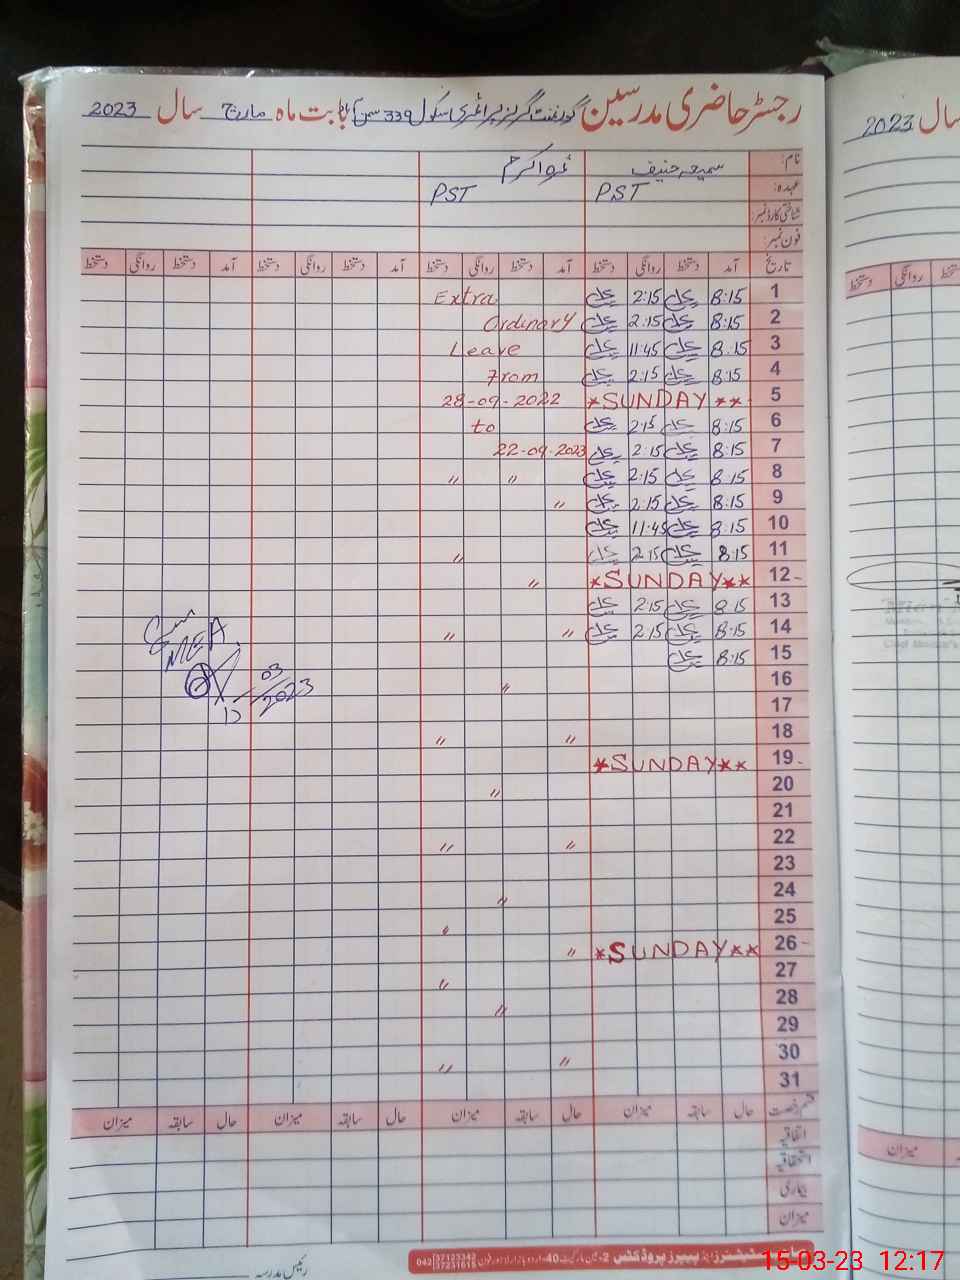 رجسٹر حاضری مدرسین گورنمنٹ گرلز پرائمری سکول 339 بابت ماہ مارچ سال 2023
2023 سال
نام:
سمیعہ حنیف
عہدہ: PST PST
شناختی کارڈ نمبر:
فون نمبر:
تاریخ آمد دستخط روانگی دستخط آمد دستخط روانگی دستخط آمد دستخط روانگی دستخط آمد دستخط روانگی دستخط
روانگی دستخط
1 8:15 2:15 Extra
2 8:15 2:15 Ordinary
3 8:15 11:45 Leave
4 8:15 2:15 From
5 *SUNDAY ** 28-09-2022
6 8:15 2:15 to
7 8:15 2:15 22-09-2023
8 8:15 2:15 〃 〃
9 8:15 2:15 〃
10 8:15 11:45
11 8:15 2:15 〃
12 *SUNDAY** 〃
13 8:15 2:15
14 8:15 2:15 〃 〃
15 8:15
MEA
03
2023
16 〃
17
18 〃 〃
19 *SUNDAY**
20 〃
21
22 〃 〃
23
24 〃
25 〃
26 *SUNDAY** 〃
27 〃
28 〃
29
30 〃 〃
31
قسم رخصت حال سابقہ میزان حال سابقہ میزان حال سابقہ میزان حال سابقہ میزان
میزان
اتفاقیہ
استحقاقیہ
بیماری
میزان
رئیس مدرسہ
042 37123342
37231615
15-03-23 12:17